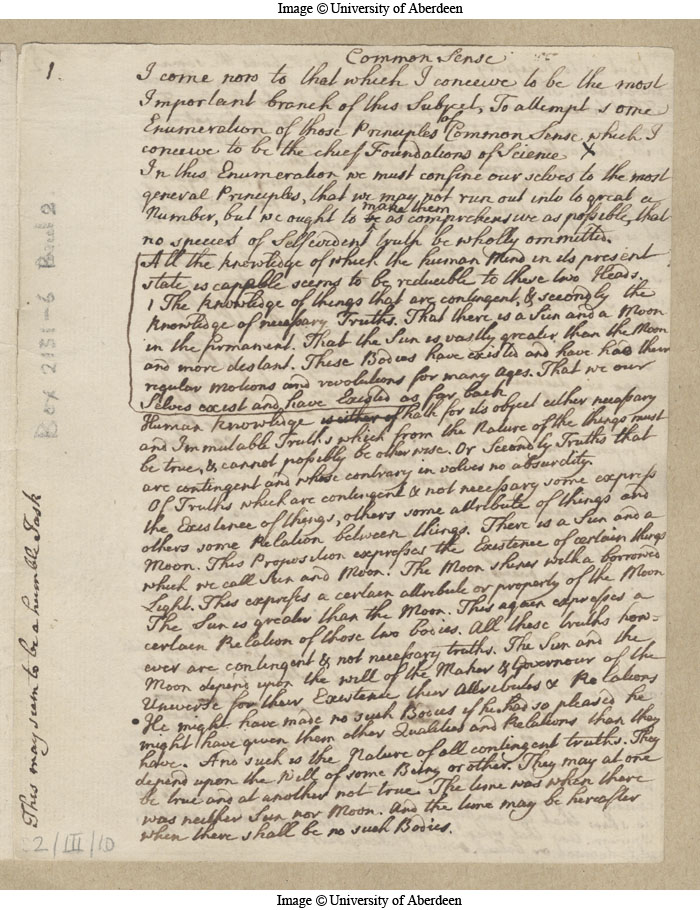 Image © University of Aberdeen
1.
Common Sense
I come now to that which I conceive to be the most
Important branch of this Subject, To attempt some
Enumeration of those Principles of Common Sense which I
conceive to be the chief Foundations of Science X
In this Enumeration we must confine our selves to the most
general Principles, that we may not run out into to great a
Number, but we ought to be make them as comprehensive as possible, that
no species of Selfevident truth be wholly ommitted.
All the knowledge of which the human Mind in its present
state is capable seems to be reducible to these two Heads.
1 The knowledge of things that are contingent, & secondly the
knowledge of necessary Truths. That there is a Sun and a Moon
in the firmament. That the Sun is vastly greater than the Moon
and more distant. These Bodies have existed and have had their
regular motions and revolutions for many ages. That we our
Selves exist and have Existed as far back
Human knowledge is either of hath for its object either necessary
and Immutable Truths which from the Nature of the things must
be true, & cannot possibly be otherwise. Or Secondly Truths that
are contingent and whose contrary involves no absurdity.
Of Truths which are contingent & not necessary some express
the Existence of things, others some attribute of things and
others some Relation between things. There is a Sun and a
Moon. This Proposition expresses the Existence of certain things
which we call Sun and Moon. The Moon shines with a borrowed
Light. This expresses a certain attribute or property of the Moon
The Sun is greater than the Moon. This again expresses a
certain Relation of those two bodies. All these truths how=
ever are contingent & not necessary truths. The Sun and the
Moon depend upon the will of the Maker & Governour of the
Universe for their Existence their Attributes & Relations
He might have made no such Bodies if he had so pleased he
might have given them other Qualities and Relations than they
have. And such is the Nature of all contingent truths. They
depend upon the Will of some Being or other. They may at one
be true and at another not true. The time was when there
was neither Sun nor Moon. And the time may be hereafter
when there shall be no such Bodies.
This may seem to be a humble Task
Box 2131-6 Bund 2
2/III/10
Image © University of Aberdeen